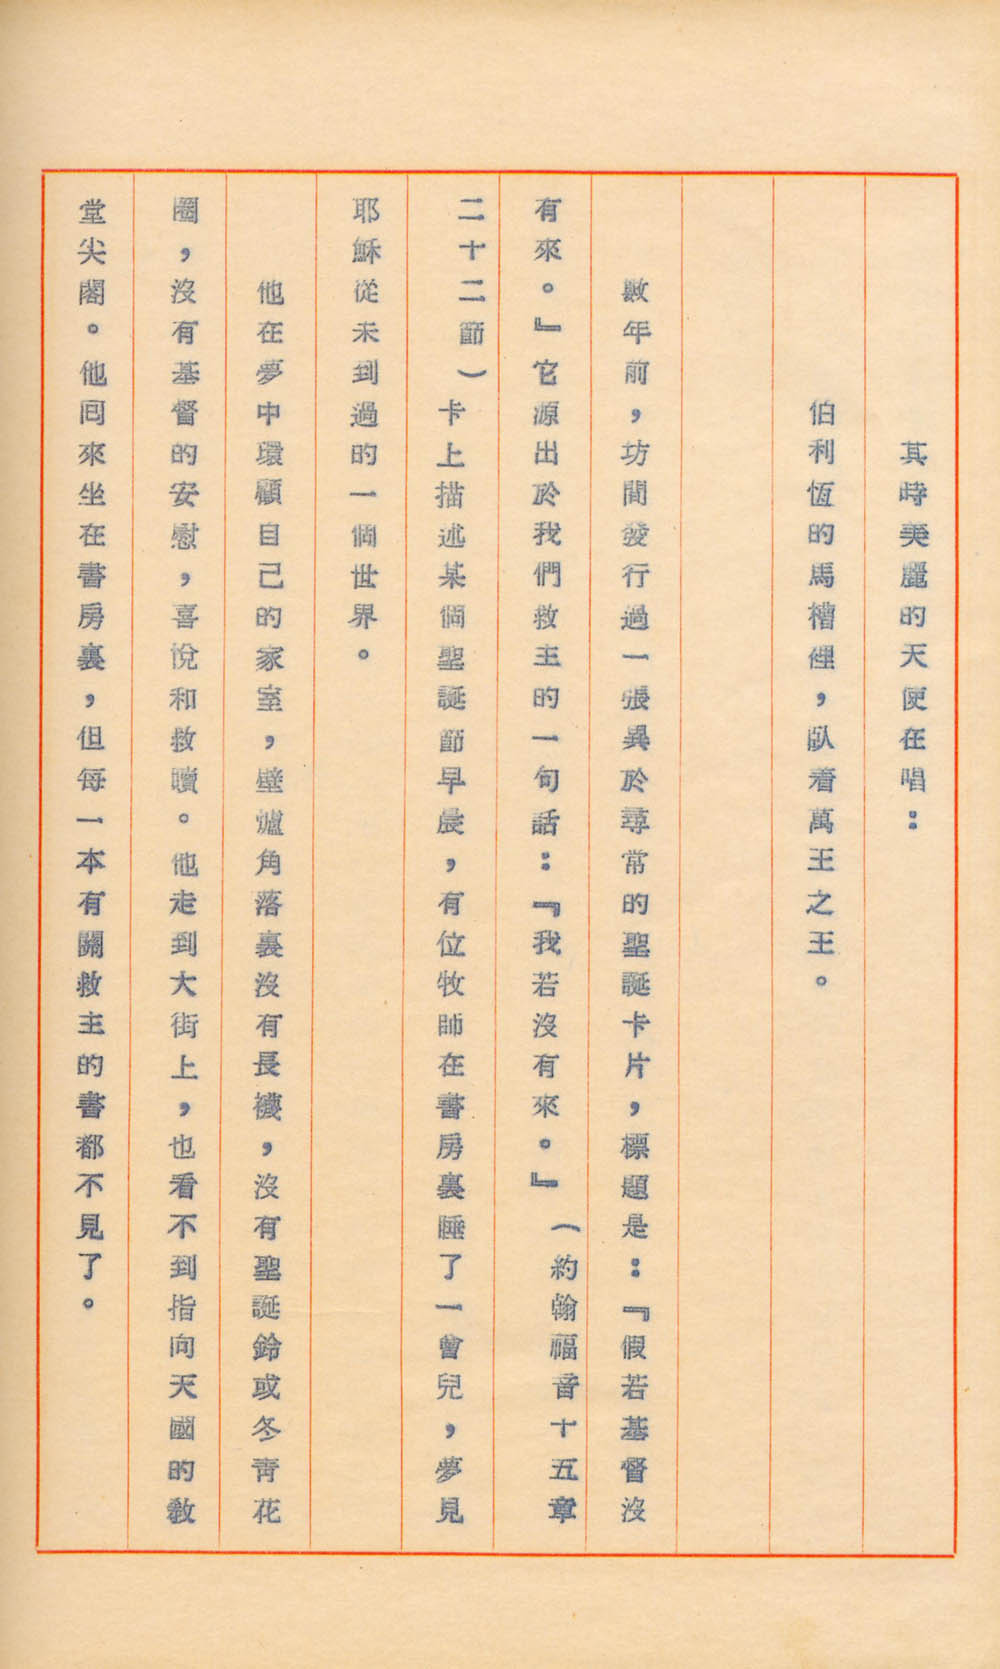 其時美麗的天使在唱：
伯利恆的馬槽裡，臥着萬王之王。
數年前，坊間發行過一張異於尋常的聖誕卡片，標題是：『假若基督沒
有來。』它源出於我們救主的一句話：『我若沒有來。』（約翰福音十五章
二十二節）卡上描述某個聖誕節早晨，有位牧師在書房裏睡了一會兒，夢見
耶穌從未到過的一個世界。
他在夢中環顧自己的家室，壁爐角落裏沒有長襪，沒有聖誕鈴或冬青花
圈，沒有基督的安慰，喜悅和救贖。他走到大街上，也看不到指向天國的教
堂尖閣。他回來坐在書房裏，但每一本有關救主的書都不見了。